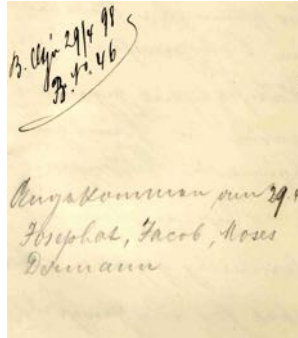 29/4 98
B. No. 46
Angekommen am 29.4
Josephat, Jacob, Moses
Dormann